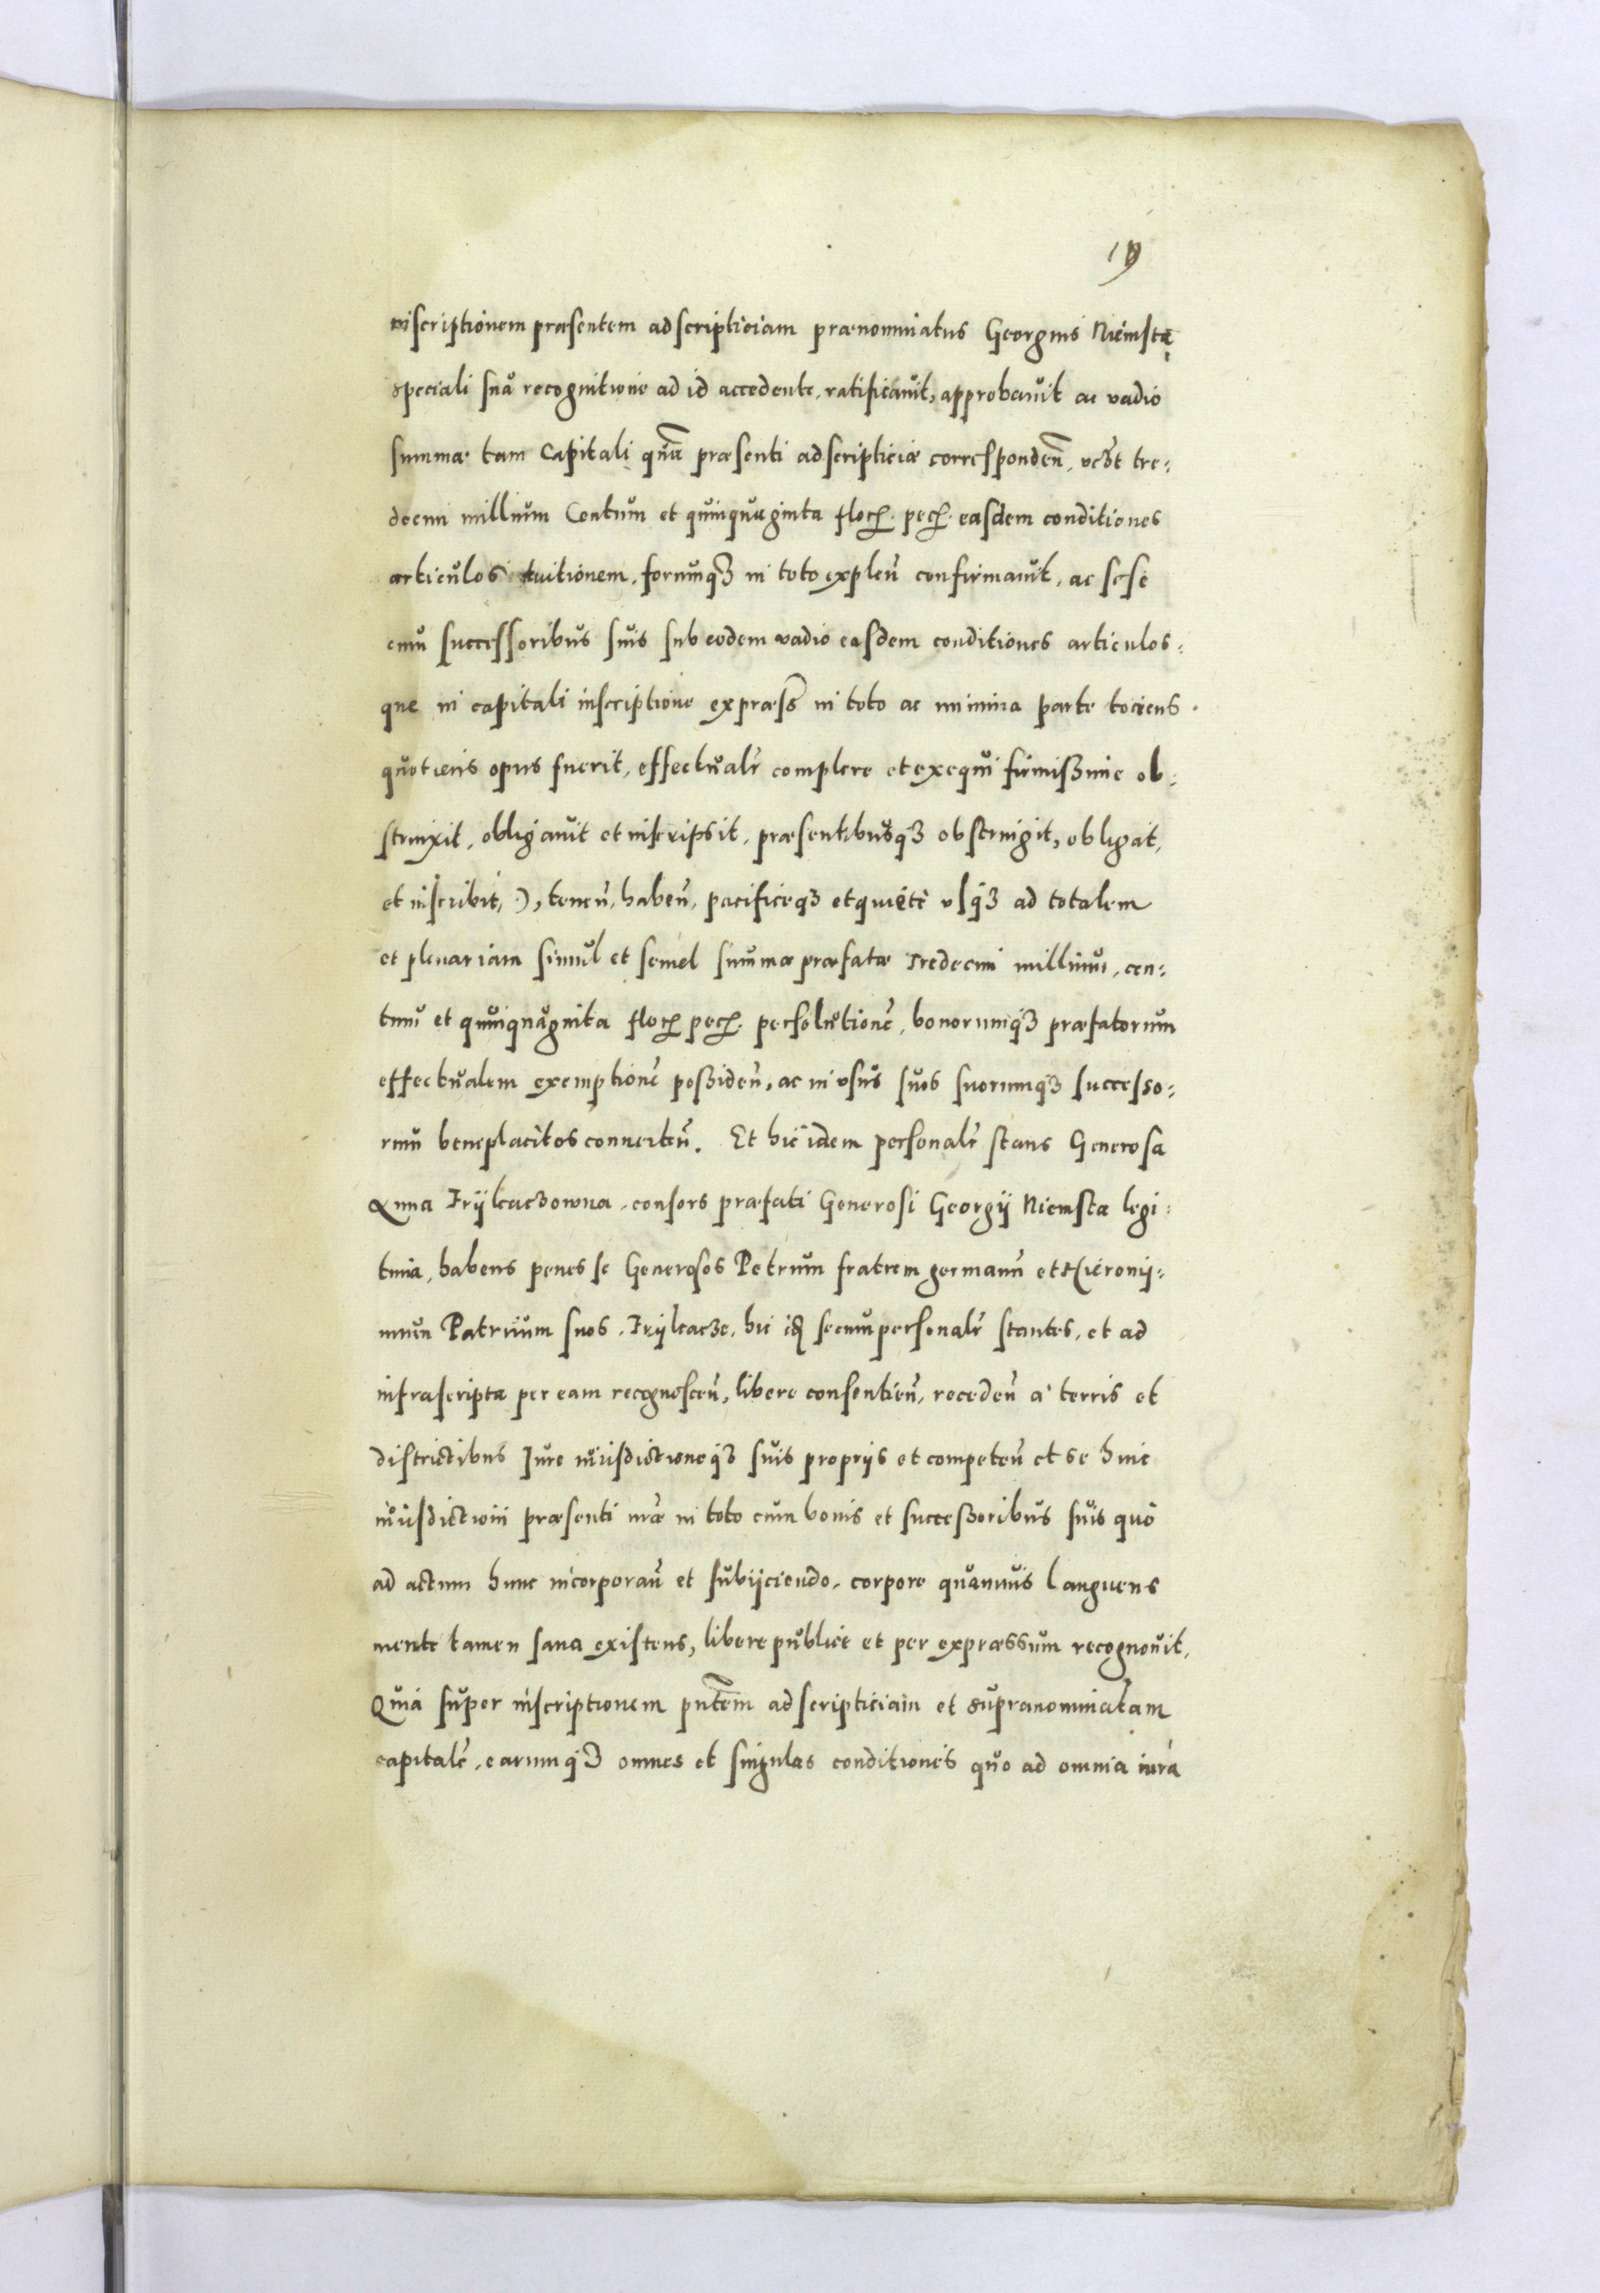 19
inscriptionem præsentem adscripticiam prænominatus Georgius Niemsta
speciali sua recognitione ad id accedente, ratificavit, approbavit ac vadio
summæ tam Capitali qua͞ præsenti adscripticiæ corresponden͞,  tre-
decim millium Centum et quinquaginta flor. pec. easdem conditiones
articulos, tuitionem, formamqȝ in toto explen̄ confirmavit, ac sese
cum successoribus suis sub eodem vadio easdem conditiones articulos-
que in capitali inscriptione expræss̄ in toto ac minima parte tociens
quotiens opus fuerit, effectualr̄ complere et exequi firmissime ob-
strinxit, obligavit et inscripsit, præsentibusqȝ obstringit, obligat,
et inscribit,), tenen̄, haben̄, pacificeqȝ et quiete usqȝ ad totalem
et plenariam simul et semel summæ præfatæ Tredecim millium, cen-
tum et quinquaginta flor. pec. persolutionē, bonorumqȝ præfatorum
effectualem exemptionē possiden̄, ac in usus suos suorumqȝ successo-
rum beneplacitos converten̄. Et hic idem personalr̄ stans Generosa
Anna Trÿleaczowna, consors præfati Generosi Georgij Niemsta legi-
tima, habens penes se Generosos Petrum fratrem germanū et Hieronÿ-
mum Patruum suos, Trÿleacze, hic  secum personalr̄ stantes, et ad
infrascripta per eam recognoscen̄, libere consentien̄, receden̄ a terris et
districtibus Iure iurisdictioneqȝ suis proprijs et competen̄ et se huic
iurisdictioni præsenti n͞ræ in toto cum bonis et successoribus suis quo
ad actum hunc incorporan̄ et subijciendo, corpore quamvis languens
mente tamen sana existens, libere publice et per expræssum recognovit,
Quia super inscriptionem pn̄tem adscripticiam et supranominatam
capitalē, earumqȝ omnes et singulas conditiones quo ad omnia iura